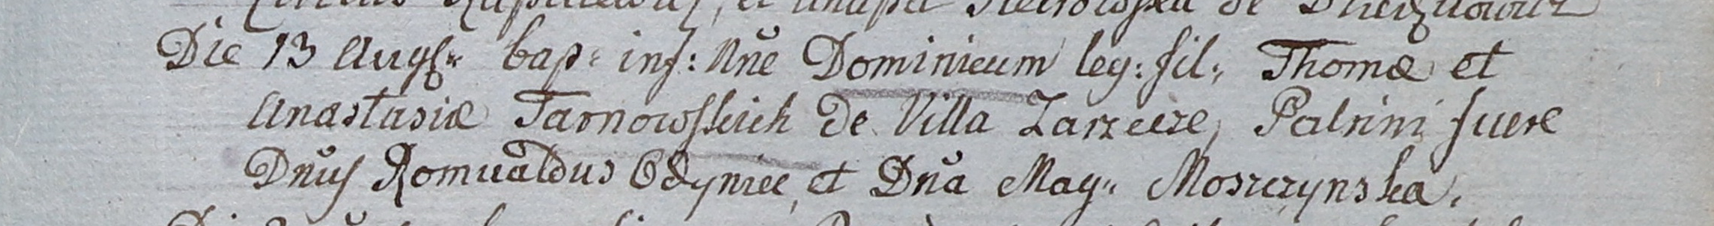 Die 13 Augs: bap: inf: Nñe Dominicum leg: fil: Thomæ et
Anastasiæ Tarnowskich de Villa Zarzecze, Patrini fuere
Dnus Romualdus Odyniec, et Dña Mag: Moszczynska.